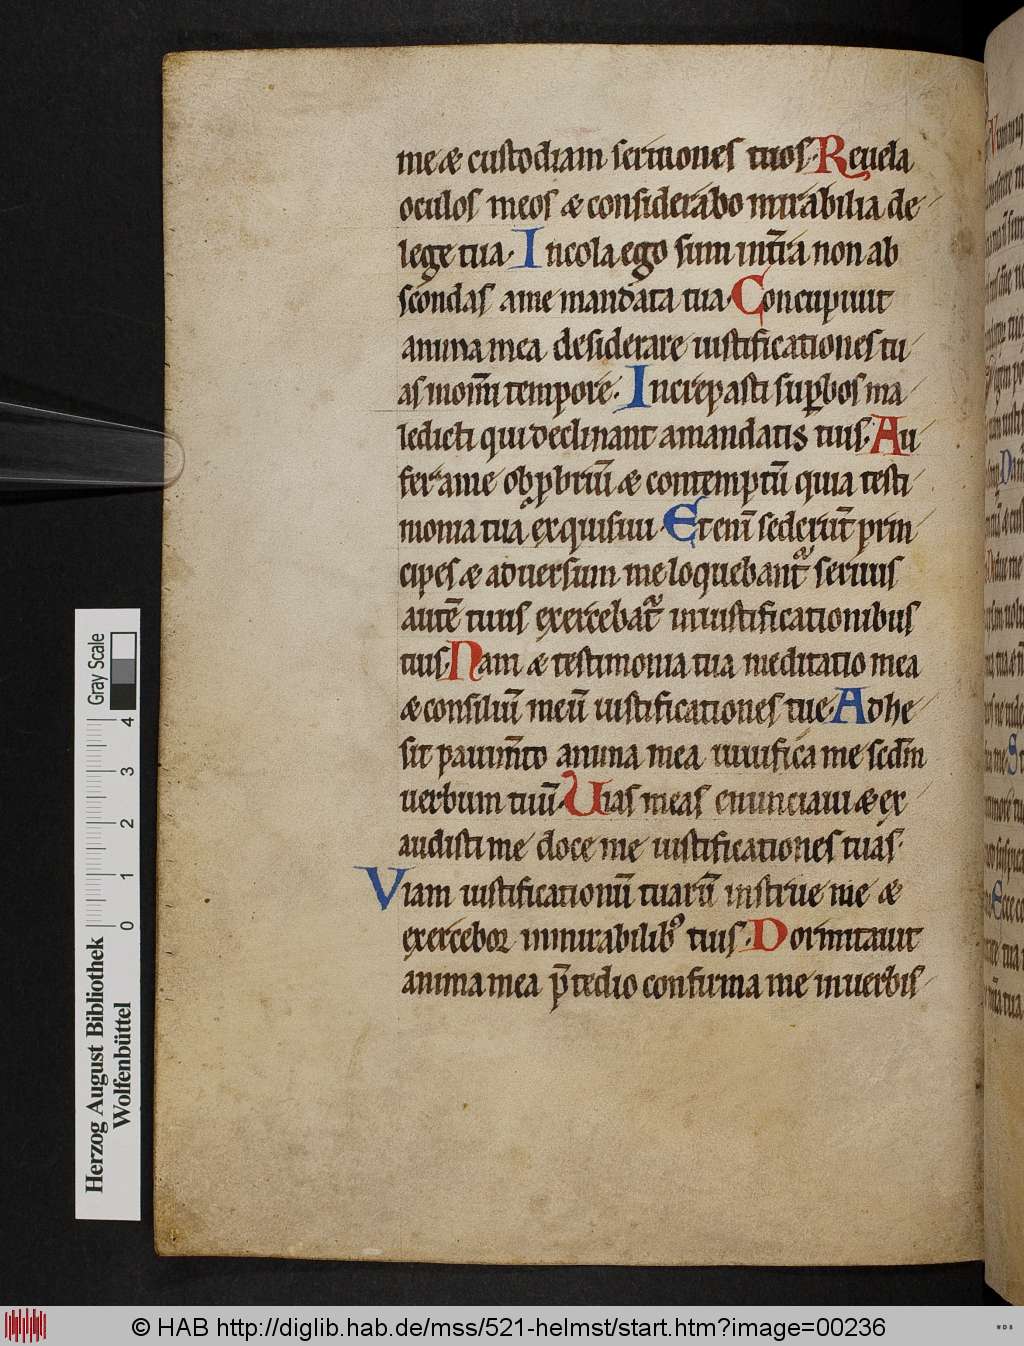 me æ custodiam sermones tuos. Reuela
oculos meos æ considerabo mirabilia de
lege tua. Incola ego sum in tr̅a non ab
scondas a me mandata tua. Concupiuit
anima mea desiderare iustificationes tu
as in om̅i tempore. Increpasti suꝑbos ma
ledicti qui declinant a mandatis tuis. Au
fer a me obꝓbriu̅ æ contemptu̅ quia testi
monia tua exquisiui. Eteni̅ sederu̅t prin
cipes æ aduersum me loquebant᷑ seruus
aute̅ tuus exercebat᷑ in iustificationibus
tuis. Nam æ testimonia tua meditatio mea
æ consiliu̅ meu̅ iustificationes tue. Adhe
sit pauim̅to anima mea uiuifica me scdm̅
uerbum tuu̅. Uias meas enunciaui æ ex
audisti me doce me iustificationes tuas.
Viam iustificationu̅ tuaru̅ instrue me æ
exercebor in mirabilibꝰ tuis. Dormitauit
anima mea p̅ tedio confirma me in uerbis
Herzog August Bibliothek
Wolfenbüttel
Gray Scale
0 1 2 3 4
© HAB http://diglib.hab.de/mss/521-helmst/start.htm?image=00236